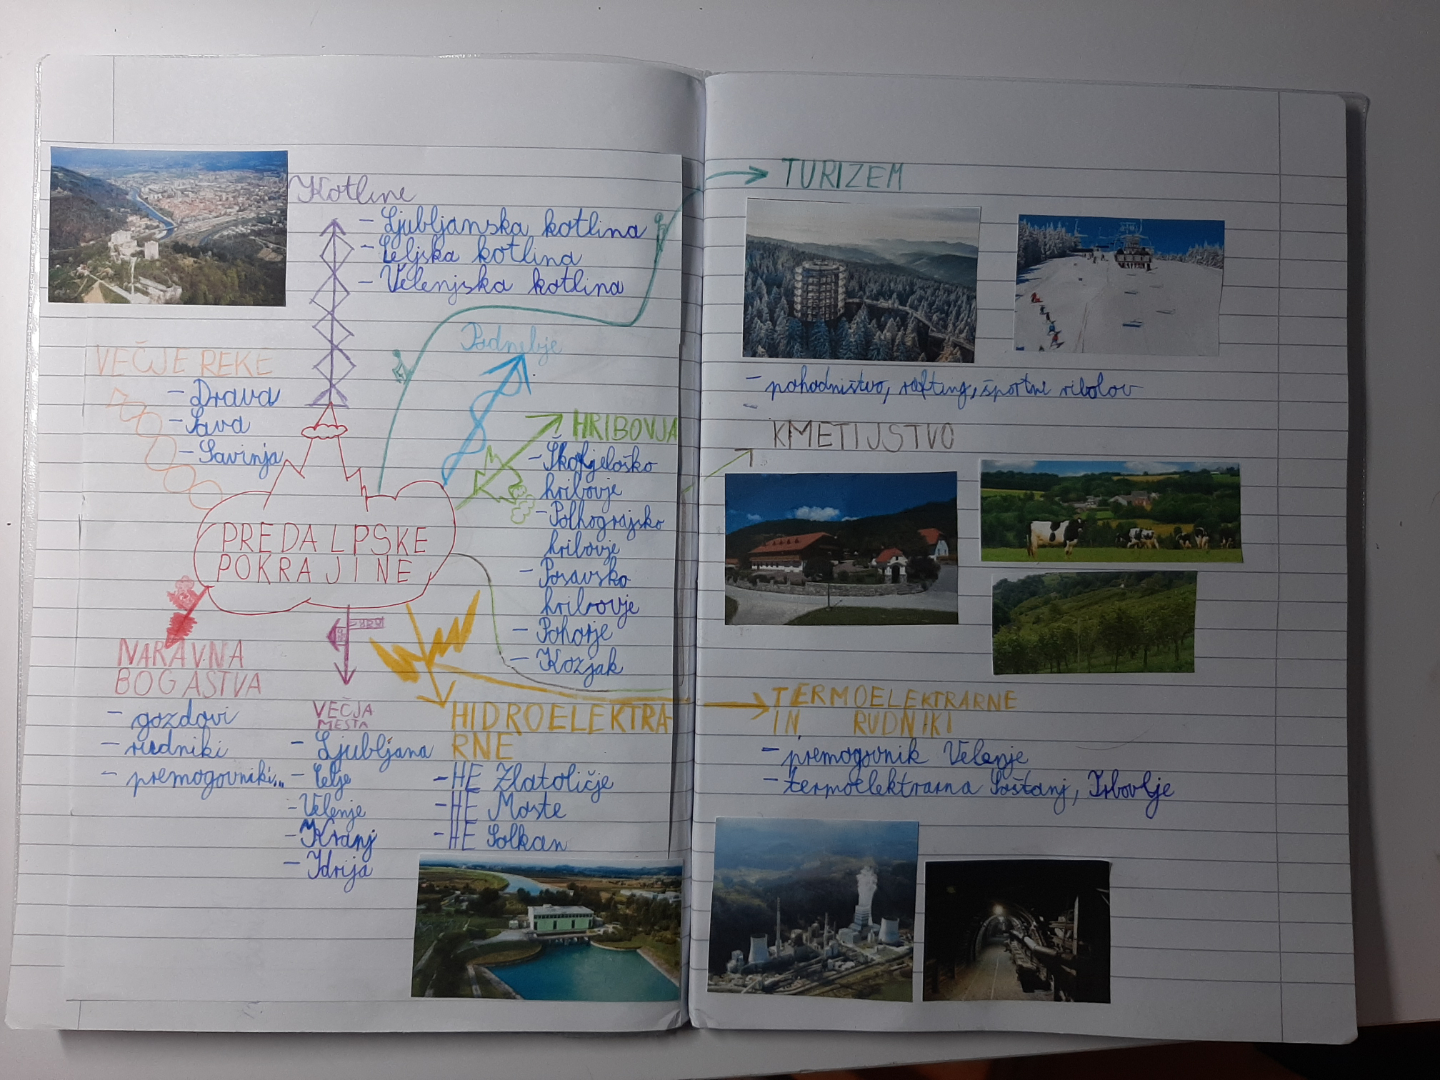 Kotline
- Ljubljanska kotlina
- Celjska kotlina
- Velenjska kotlina
VEČJE REKE
- Drava
- Sava
- Savinja
Podnebje
HRIBOVJA
- Škofjeloško
hribovje
- Polhograjsko
hribovje
- Posavsko
hribovje
- Pohorje
- Kozjak
PREDALPSKE
POKRAJINE
NARAVNA
BOGASTVA
- gozdovi
- rudniki
- premogovniki...
VEČJA
MESTA
- Ljubljana
- Celje
- Velenje
- Kranj
- Idrija
HIDROELEKTRA-
RNE
- HE Zlatoličje
- HE Moste
- HE Solkan
TURIZEM
- pohodništvo, rafting, športne ribolov
KMETIJSTVO
TERMOELEKTRARNE
IN RUDNIKI
- premogovnik Velenje
- termoelektrarna Šoštanj, Trbovlje